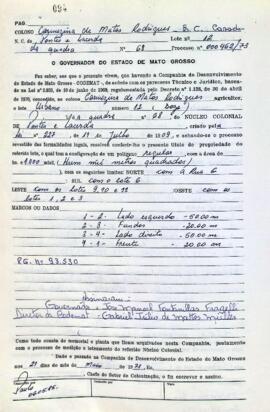 094
PAG
COLONO Carmezina de Mattos Rodrigues B.C. Casada
N.C. de Pontes e Lacerda Lote nº 12
da quadra nº 68 Processo nº 000462/73
O GOVERNADOR DO ESTADO DE MATO GROSSO
Faz saber, aos que o presente virem, que havendo a Companhia de Desenvolvimento
do Estado de Mato Grosso - CODEMAT -, de acordo com os pareceres Técnico e Jurídico, basea-
da na Lei nº 2.803, de 10 de junho de 1968, regulamentada pelo Decreto nº 1.138, de 20 de abril
de 1970, concedido, ao colono Carmezina de Mattos Rodrigues agricultor, o
lote Urbano nº 12
na quadra nº 68 do NÚCLEO COLONIAL
de Pontes e Lacerda criado pela
Lei nº 227 de 14 de Julho de e observando-se o
recesso das formalidades legais, resolveu conferir o presente título de propriedade do
referido lote, o qual tem a configuração de um polígono regular com a área de
1.000 (Hum mil metros quadrados)
com os seguintes limites: NORTE com a Rua G
SUL com o lote 6
LESTE com os lotes 9, 10 e 11 OESTE com os
lotes 1, 2 e 3
MARCOS OU DADOS
1 - 2 - Lado esquerdo - 50.00 m
2 - 3 - Fundos - 20.00 m
3 - 4 - Lado direito - 50.00 m
4 - 1 - Frente - 20.00 m
PG. Nº 93.530
Assinaram:
Governador - José Manoel Fontanillas Fragelli
Diretor da Codemat - Gabriel Júlio de Mattos Müller
Como tudo consta do memorial e planta que ficam arquivados nesta Companhia, juntamente com
o processo de medição e loteamento do referido Núcleo Colonial.
Dado e passado na Companhia de Desenvolvimento do Estado de Mato Grosso
aos 21 dias do mês de
Chefe do Setor de Colonização, o fiz escrever e assino.